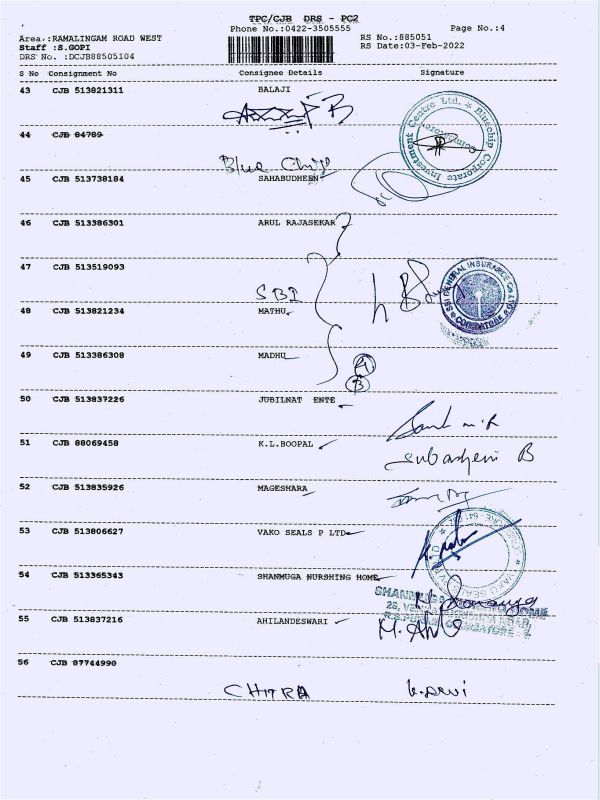 TPC/CJB DRS - PC2
Phone No.:0422-3505555 Page No.:4
Area.:RAMALINGAM ROAD WEST RS No.:885051
Staff :S.GOPI RS Date:03-Feb-2022
DRS No. :DCJB88505104
S No Consignment No Consignee Details Signature
43 CJB 513821311 BALAJI
44 CJB 84789
Blue Chip
45 CJB 513738184 SAHABUDHEEN
46 CJB 513386301 ARUL RAJASEKAR
47 CJB 513519093
SBI
48 CJB 513821234 MATHU
49 CJB 513386308 MADHU
50 CJB 513837226 JUBILNAT ENTE
51 CJB 88069458 K.L.BOOPAL
52 CJB 513835926 MAGESHARA
53 CJB 513806627 VAKO SEALS P LTD
54 CJB 513365343 SHANMUGA NURSHING HOME
55 CJB 513837216 AHILANDESWARI
56 CJB 87744990
CHITRA
Bluechip Corporate Investment Centre Ltd.
Coimbatore
SBI GENERAL INSURANCE CO LTD
COIMBATORE